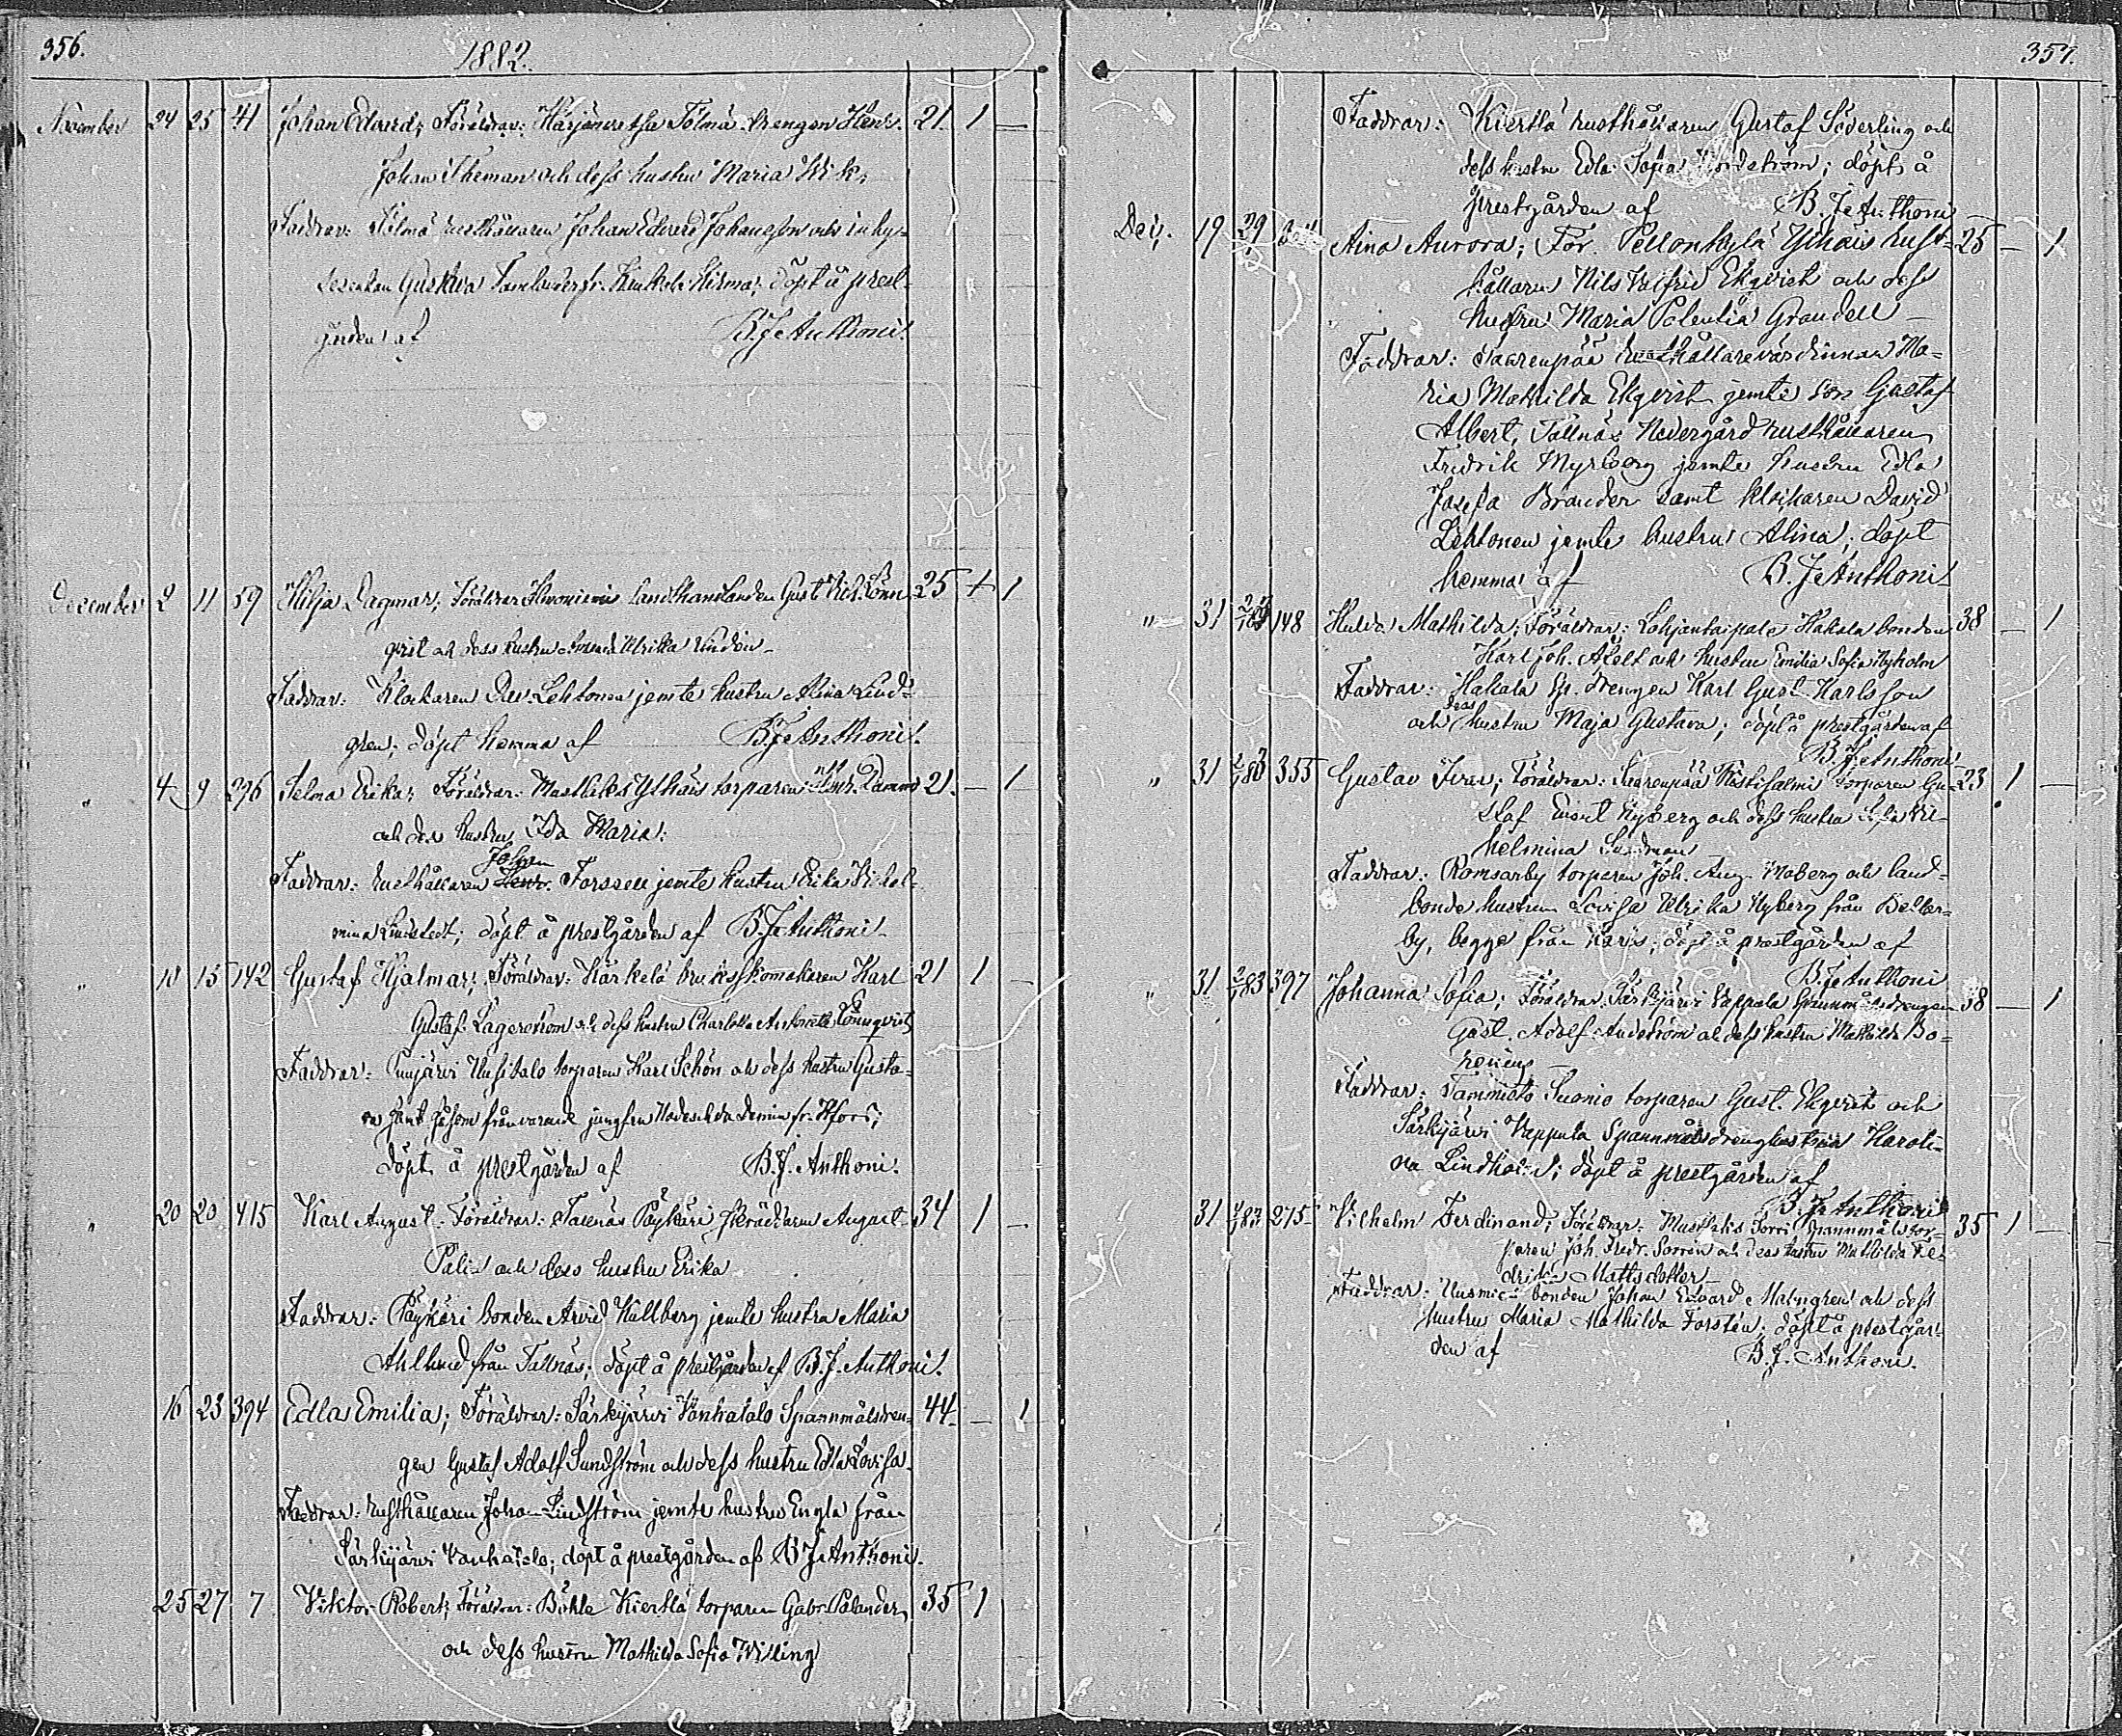 356.
1882.
November 24 25 41 Johan Edvard; Föräldrar: Tölmä drengen Henr. 21. 1 —
Johan och dess hustru Maria Wik;
Faddrar: Tölmä rusthållaren Johan Edvard Johansson och inhy-
Gustava döpt å prest-
gården af B. J:e Anthoni.
December 2 11 59 Hilja Dagmar; Föräldrar landthandlanden Gust. Lönn- 25 + 1
qvist och dess hustru Ulrika
Faddrar: Klockaren Dav. Lehtonen jemte hustru Alina Lind-
gren; döpt hemma af B. J:e Anthoni.
" 4 9 296 Selma Erika; Föräldrar: Ylhäis torparen 21. — 1
och dess hustru Ida Maria;
Johan
Faddrar: rusthållaren Henr. Forssell jemte hustru Erika Vilhel-
mina Lindstedt; döpt å prestgården af B. J:e Anthoni.
" 10 15 142 Gustaf Hjalmar; Föräldrar: Kärkelä bruksskomakaren Karl 21 1 —
Gustaf Lagerström och dess hustru Charlotta Lönnqvist
Faddrar: Punjärvi Uusitalo torparen Karl Schön och dess hustru Gusta-
va samt såsom frånvarande jungfru fr. H:fors;
döpt å prestgården af B. J. Anthoni.
" 20 20 415 Karl August; Föräldrar: Tallnäs Päykäri skräddaren August 34 1 —
Palin och dess hustru Erika
Faddrar: Päykäri bonden Arvid Kullberg jemte hustru Maria
Ahllund från Tallnäs; döpt å prestgården af B. J. Anthoni.
16 23 394 Edla Emilia; Föräldrar: Särkijärvi Vanhatalo Spannmålsdren- 44 — 1
gen Gustaf Adolf Sundström och dess hustru Edla Lovisa.
Faddrar: rusthållaren Johan Lindström jemte hustru Engla från
Särkijärvi Vanhatalo; döpt å prestgården af B. J:e Anthoni.
25 27 7 Viktor Robert; Föräldrar: Böhle Kierklä torparen Gabr. Palander 35 1
och dess hustru Mathilda Sofia Willing
357.
Faddrar: Kierklä rusthållaren Gustaf Söderling och
dess hustru Edla Sofia Nordström; döpt å
prestgården af B. J:e Anthoni
Dec. 19 29 Aina Aurora; För. Pellonkylä Ylhäis rust- 25 — 1
hållaren Nils Valfrid Ekqvist och dess
hustru Maria Grandell —
Faddrar: Saarenpää rusthållarevärdinnan Ma-
ria Mathilda Ekqvist jemte son Gustaf
Albert, Tallnäs Nedergård rusthållaren
Fredrik Myrberg jemte hustru Edla
Josefa Brander samt klockaren David
Lehtonen jemte hustru Alina; döpt
hemma af B. J:e Anthoni
" 31 148 Hulda Mathilda; Föräldrar: Lohjantaipale Hakala bonden 38 — 1
Karl Joh. Axell och hustru Emilia Sofia Nyholm
Faddrar: Hakala Sp. drengen Karl Gust. Karlsson
dess
och hustru Maja Gustava; döpt å prestgården af
B. J:e Anthoni
" 31 355 Gustav Ivar; Föräldrar: Saarenpää torparen Gu- 23 1 —
staf Nyberg och dess hustru Sofia Vil-
helmina Sundman
Faddrar: Romsarby torparen Joh. Aug. Moberg och land-
bonde hustrun Lovisa Ulrika Nyberg från
by, begge från Karis; döpt å prestgården af
B. J:e Anthoni
" 31 397 Johanna Sofia; Föräldrar: Särkijärvi Vappula Spannmålsdrengen 38 — 1
Gust. Adolf Andström och dess hustru Mathilda Bo-
Faddrar: Tammisto Suonio torparen Gust. Ekqvist och
Särkijärvi Vappula Spannmålsdrenghustrun Karoli-
na Lindholm; döpt å prestgården af
B. J:e Anthoni
31 275 Vilhelm Ferdinand; Föräldrar: Sorri Spannmålstor- 35 1 —
paren Joh. Fredr. Sorrin och dess hustru Mathilda Fre-
drika Mattsdotter
Faddrar: bonden Johan Edvard Malmgren och dess
hustru Maria Mathilda Forstén; döpt å prestgår-
den af B. J. Anthoni.